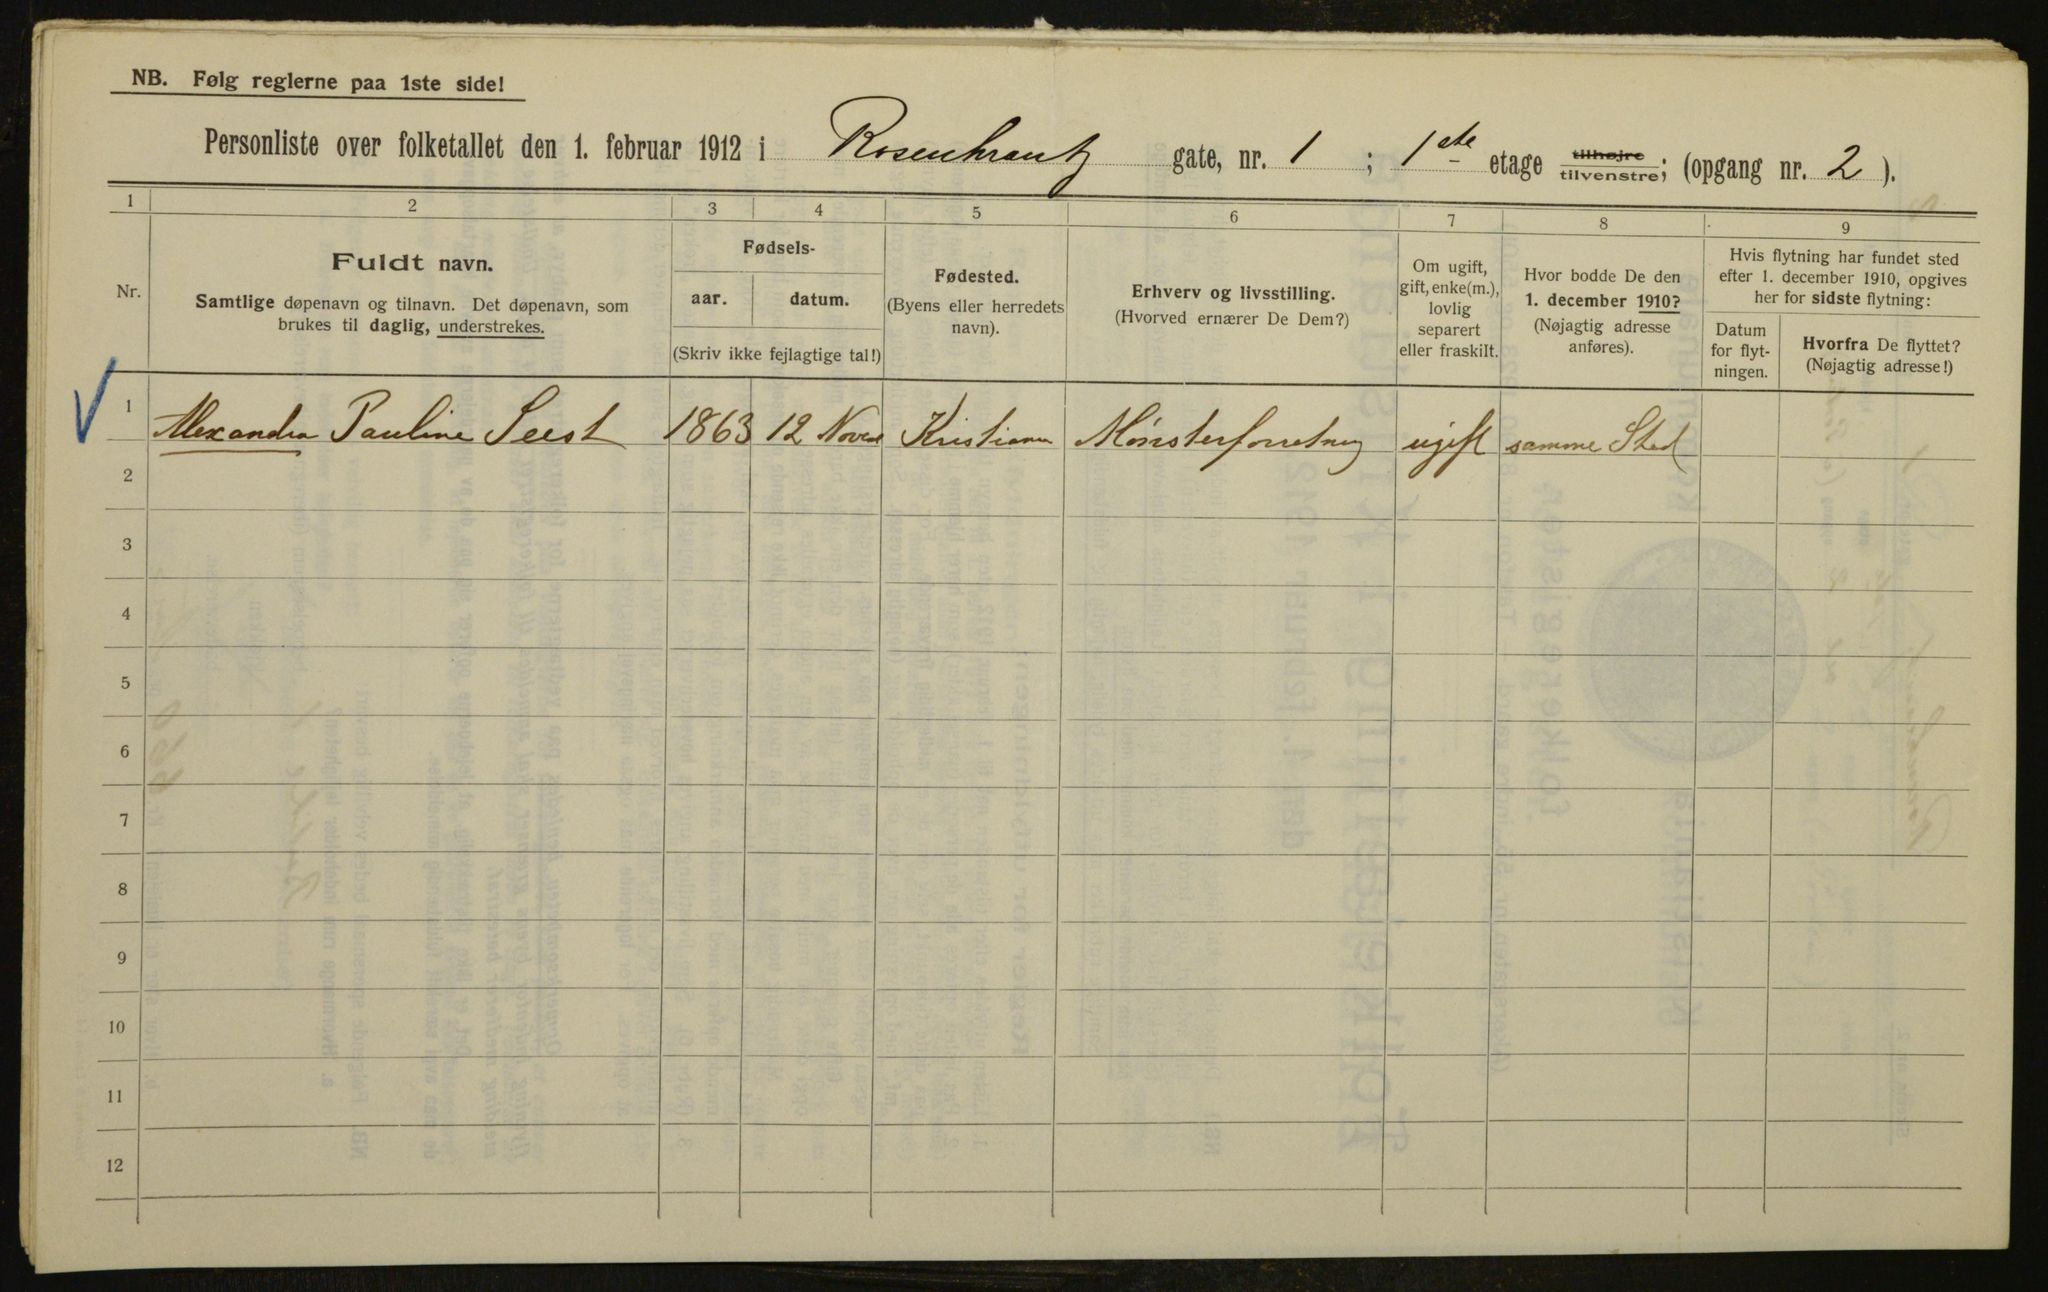 NB. Følg reglerne paa 1ste side!
Personliste over folketallet den 1. februar 1912 i Rosenkrantz gate, nr. 1 ; 1ste etage tilhøjre tilvenstre; (opgang nr. 2 ).
1 2 3 4 5 6 7 8 9
Nr.
Fuldt navn.
Samtlige døpenavn og tilnavn. Det døpenavn, som
brukes til daglig, understrekes.
Fødsels-
aar. datum.
(Skriv ikke fejlagtige tal!)
Fødested.
(Byens eller herredets
navn).
Erhverv og livsstilling.
(Hvorved ernærer De Dem?)
Om ugift,
gift, enke(m.),
lovlig
separert
eller fraskilt.
Hvor bodde De den
1. december 1910?
(Nøjagtig adresse
anføres).
Hvis flytning har fundet sted
efter 1. december 1910, opgives
her for sidste flytning:
Datum
for flyt-
ningen.
Hvorfra De flyttet?
(Nøjagtig adresse!)
1 Alexandra Pauline Seest 1863 12 Novbr Kristiania Mønsterforretning ugift samme Sted
2
3
4
5
6
7
8
9
10
11
12